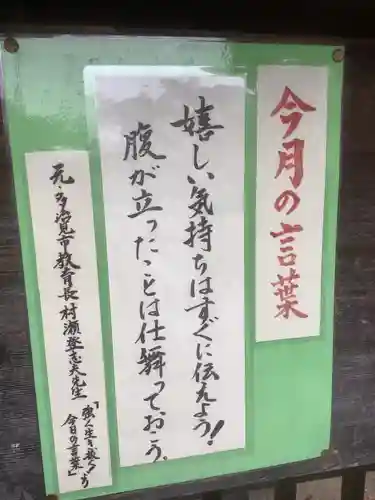 今月の言葉
嬉しい気持ちはすぐに伝えよう!
腹が立ったことは仕舞っておこう。
元・多治見市教育長村瀬登志夫先生
「強く生き抜こう
今日の言葉」